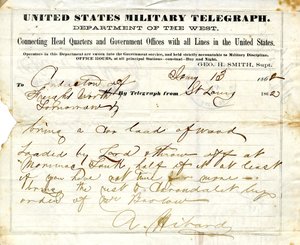 UNITED STATES MILITARY TELEGRAPH.
DEPARTMENT OF THE WEST.
Connecting Head Quarters and Government Offices with all Lines in the United States.
Operators in this Department are sworn into the Government service, and held strictly accountable to Military Discipline.
OFFICE HOURS, at all principal Stations—constant—Day and Night.
GEO. H. SMITH, Supt.
Jany 13 186
To Conductor of
By Telegraph from St Louis 1862
bring a car load of wood
loaded by Ford & throw off at
half of it at least
if you have not time for more
bring the rest to Carondelet by
order of Mr Barlow
A. Hibard